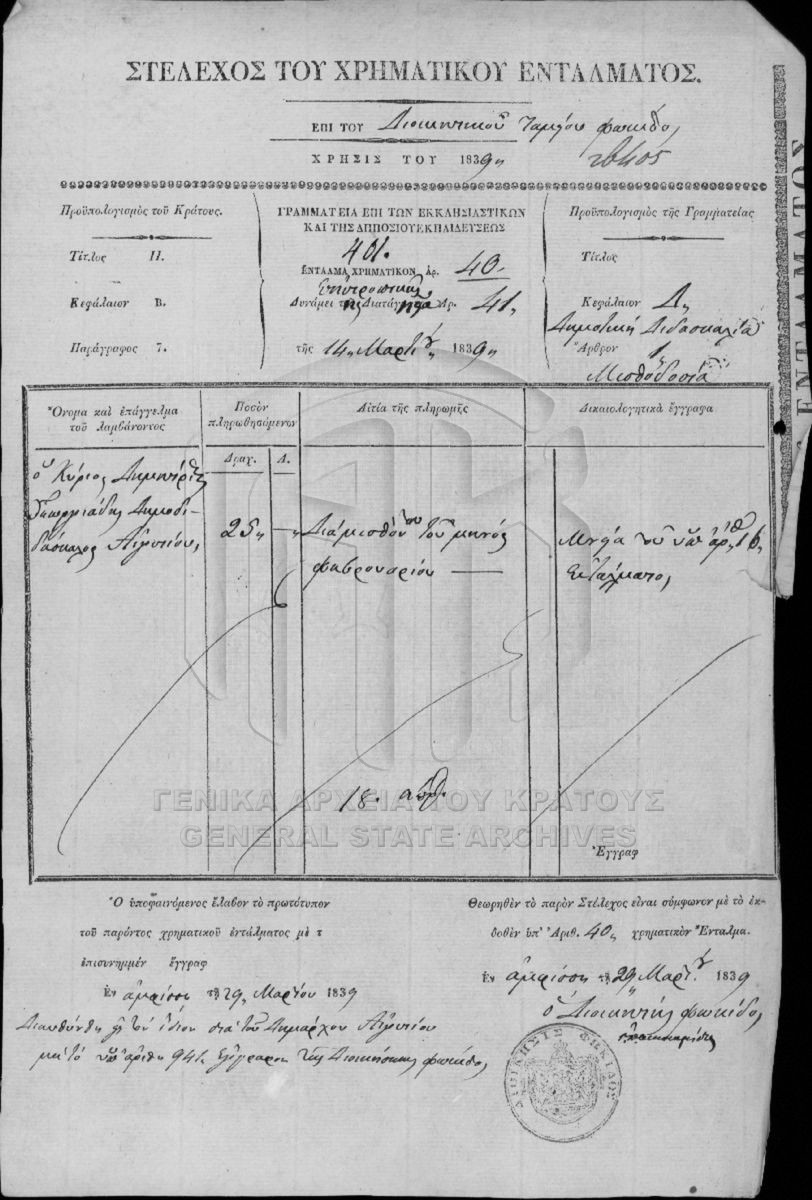 ΣΤΕΛΕΧΟΣ ΤΟΥ ΧΡΗΜΑΤΙΚΟΥ ΕΝΤΑΛΜΑΤΟΣ.
ΕΠΙ ΤΟΥ Διοικητικοῦ Ταμείου Φωκίδος
ΧΡΗΣΙΣ ΤΟΥ 1839
Προϋπολογισμὸς τοῦ Κράτους.
Τίτλος Π.
Κεφάλαιον Β.
Παράγραφος 7.
ΓΡΑΜΜΑΤΕΙΑ ΕΠΙ ΤΩΝ ΕΚΚΛΗΣΙΑΣΤΙΚΩΝ
ΚΑΙ ΤΗΣ ΔΗΜΟΣΙΟΥ ΕΚΠΑΙΔΕΥΣΕΩΣ
401.
ΕΝΤΑΛΜΑ ΧΡΗΜΑΤΙΚΟΝ ΑΡ. 40
Ἐπιτροπικῆς
Δυνάμει τῆς Διατάγῆς Ἀρ. 41
τῆς 14 Μαρτίου 1839
Προϋπολογισμὸς τῆς Γραμματείας
Τίτλος
Κεφάλαιον Δ
Δημοτικὴ Διδασκαλία
Ἄρθρον 1
Μισθοδοσία
ΕΝΤΑΛΜΑΤΟΣ
Ὄνομα καὶ ἐπάγγελμα
τοῦ λαμβάνοντος
Ποσὸν
πληρωθησόμενον
Δραχ. Λ.
Αἰτία τῆς πληρωμῆς
Δικαιολογητικὰ ἔγγραφα
ὁ Κύριος Δημήτριος
Γεωργιάδης Δημοδι-
δάσκαλος Αἰγιτίου
25 —
Διὰ μισθόν του τοῦ μηνὸς
Φεβρουαρίου —
Μνεία τοῦ ὑπ' ἀρ. 16
Ἐντάλματος
18. ἀπρ.
Ἔγγραφ
ΓΕΝΙΚΑ ΑΡΧΕΙΑ ΤΟΥ ΚΡΑΤΟΥΣ
GENERAL STATE ARCHIVES
Ὁ ὑποφαινόμενος ἔλαβον τὸ πρωτότυπον
τοῦ παρόντος χρηματικοῦ ἐντάλματος μὲ τ
ἐπισυνημμέν ἔγγραφ
Ἐν Ἀμφίσσῃ τῇ 29 Μαρτίου 1839
Διευθύνθη πρὸς τὸν ἴδιον διὰ τοῦ Δημάρχου Αἰγιτίου
μὲ τὸ ὑπ' ἀριθ. 941 ἔγγραφον τῆς Διοικήσεως Φωκίδος
Θεωρηθὲν τὸ παρὸν Στέλεχος εἶναι σύμφωνον μὲ τὸ ἐκ-
δοθὲν ὑπ' Ἀριθ. 40 χρηματικὸν Ἔνταλμα.
Ἐν Ἀμφίσσῃ τῇ 29 Μαρτίου 1839
ὁ Διοικητὴς Φωκίδος
ΔΙΟΙΚΗΣΙΣ ΦΩΚΙΔΟΣ